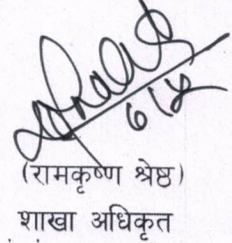 ६/४
(रामकृष्ण श्रेष्ठ)
शाखा अधिकृत